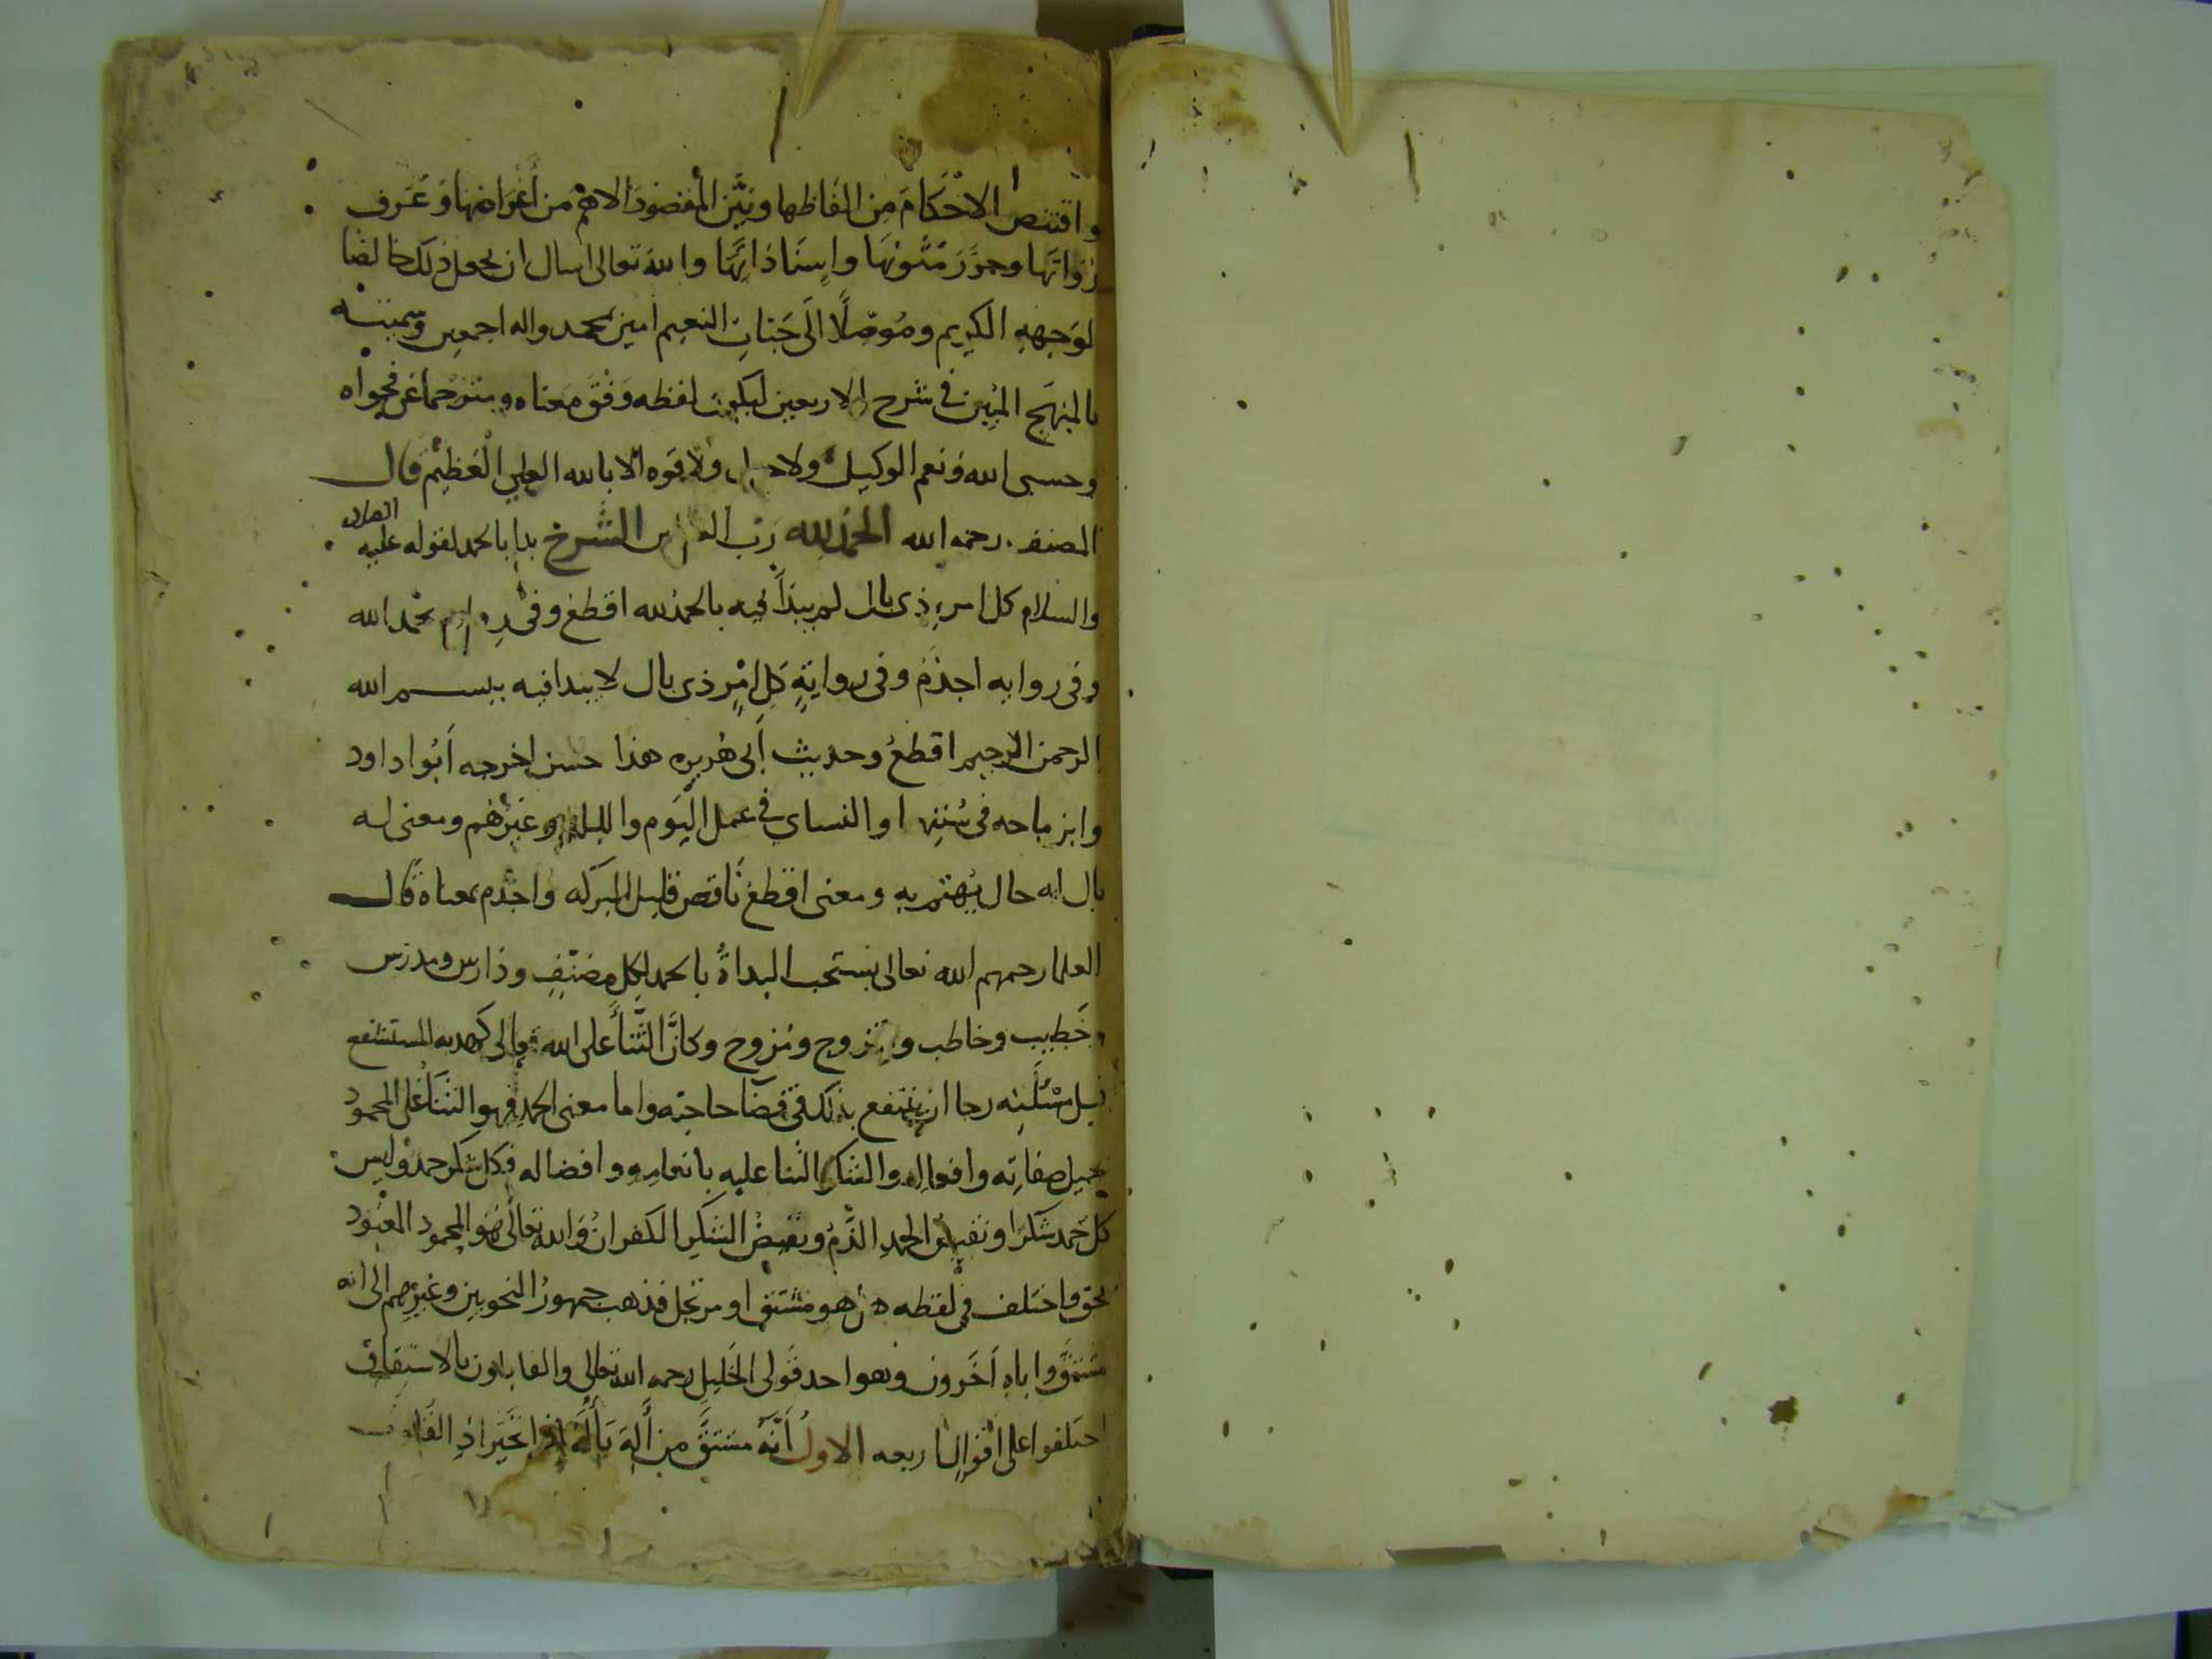 واقتنص الاحكام من الفاظها وبين المقصود الاهم من أغراضها وعرف
رواتها وحرر متونها واسناداتها والله تعالى اسال ان يجعل ذلك خالصا
لوجهه الكريم وموصلا الى جنات النعيم امين بمحمد واله اجمعين وسميته
بالمنهج المبين في شرح الاربعين ليكون لفظه وفق معناه ومترجما عن فحواه
وحسبى الله ونعم الوكيل ولا حول ولا قوه الا بالله العلي العظيم قال
المصنف رحمه الله الحمد لله رب العالمين الشرح بدا بالحمد لقوله عليه الصلاه
والسلام كل امر ذى بال لم يبدأ فيه بالحمد لله اقطع وفى بحمد الله
وفى روايه اجذم وفى رواية كل امر ذى بال لا يبدا فيه ببسم الله
الرحمن الرحيم اقطع وحديث أبى هريره هذا حسن اخرجه أبوا داود
وابن ماجه فى سننهما والنساى في عمل اليوم والليله وغيرهم ومعنى له
بال له حال يهتم به ومعنى اقطع ناقص قليل البركه واجذم بمعناه قال
العلما رحمهم الله تعالى يستحب البداة بالحمد لكل مصنف ودارس ومدرس
وخطيب وخاطب ومتزوج ومزوج وكان الثنا على الله تعالى كهديه المستشفع
قبل مسئلته رجا ان ينتفع بذلك فى قضا حاجته واما معنى الحمد فهو الثنا على المحمود
بجميل صفاته وافعاله والشكر الثنا عليه بانعامه وافضاله فكل شكر حمد وليس
كل حمد شكرا ونقيض الحمد الذم ونقيض الشكر الكفران والله تعالى هو المحمود المعبود
بحق واختلف في لفظه هل هو مشتق او مرتجل فذهب جمهور النحويين وغيرهم الى انه
مشتق واباه آخرون وهو احد قولى الخليل رحمه الله تعالى والقايلون بالاشتقاق
اختلفوا على اقوال اربعه الاول أنه مشتق من أله يأله اذا تحير اذ